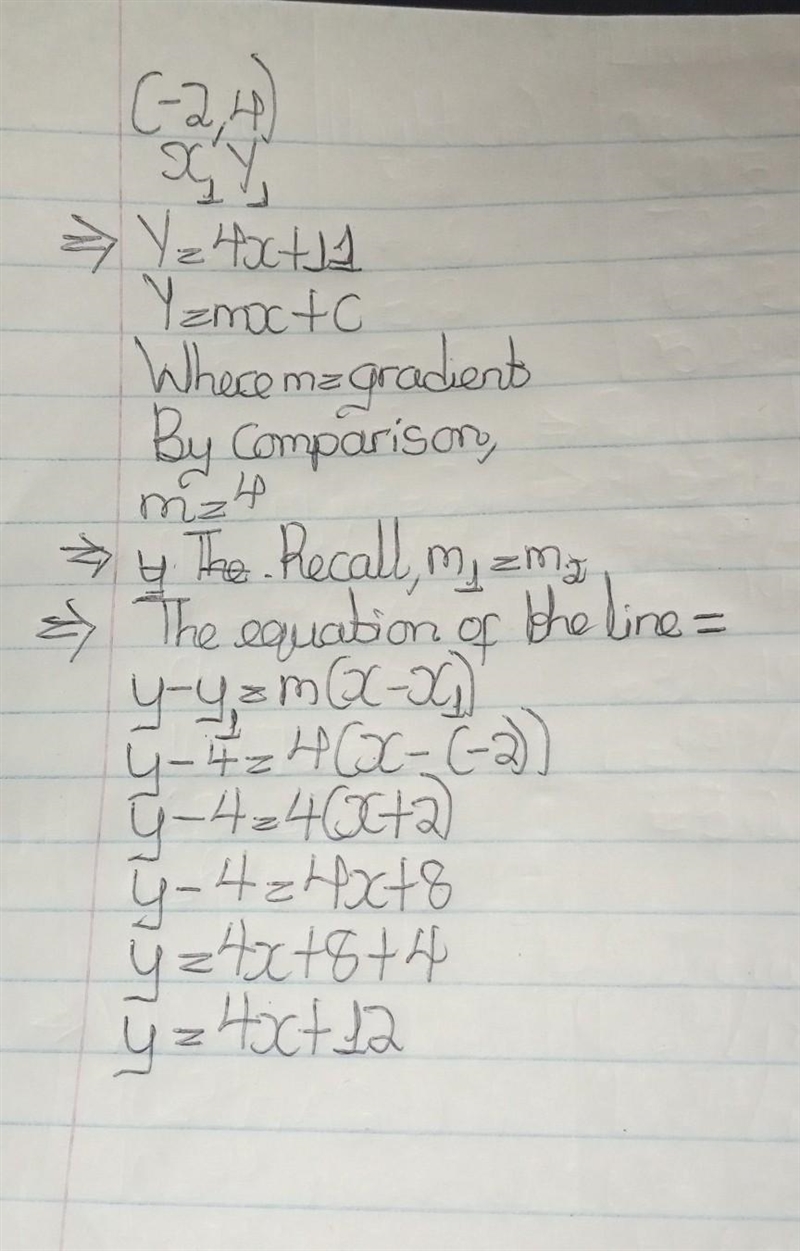 (-2,4)
x₁ y₁
⇒ Y=4x+11
Y=mx+c
Where m=gradient
By comparison,
m=4
⇒ y. The. Recall, m₁=m₂
⇒ The equation of the line=
y-y₁=m(x-x₁)
y-4=4(x-(-2))
y-4=4(x+2)
y-4=4x+8
y=4x+8+4
y=4x+12